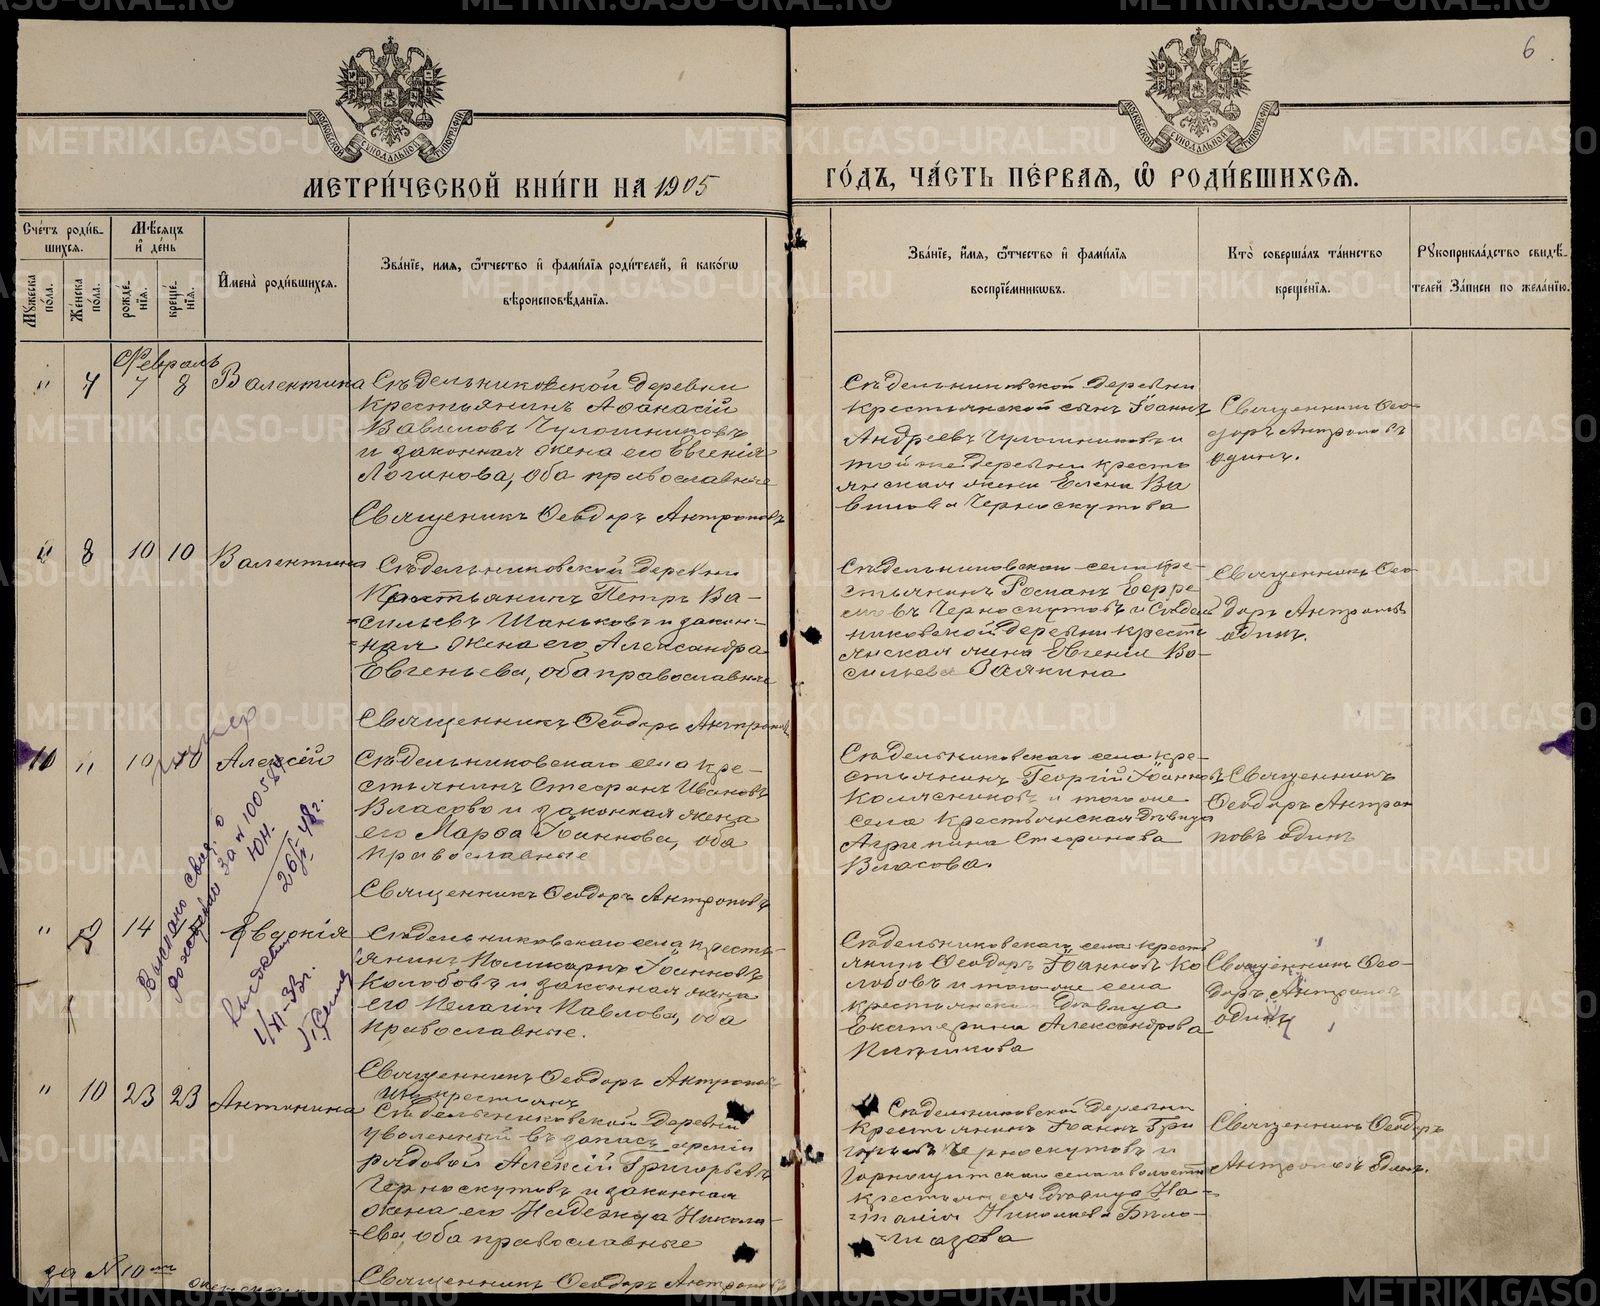 6
МОСКОВСКОЙ СѴНОДАЛЬНОЙ ТИПОГРАФІИ
МОСКОВСКОЙ СѴНОДАЛЬНОЙ ТИПОГРАФІИ
МЕТРИ́ЧЕСКОЙ КНИ́ГИ НА 1905
ГО́ДЪ, ЧА́СТЬ ПЕ́РВАѦ, Ѡ҆ РОДИ́ВШИХСѦ.
Сче́тъ роди́в-
шихсѧ.
Мѣ́сѧцъ
и҆ де́нь
Мꙋ́жеска
по́ла.
Же́нска
по́ла.
рожде́-
нїѧ.
креще́-
нїѧ.
И҆мена̀ роди́вшихсѧ.
Зва́нїе, и҆мѧ, ѻ҆́тчество и҆ фами́лїѧ роди́телей, и҆ како́гѡ
вѣроисповѣ́данїѧ.
Зва́нїе, и҆мѧ, ѻ҆́тчество и҆ фами́лїѧ
воспрїе́мникѡвъ.
Кто̀ соверша́лъ та́инство
креще́нїѧ.
Рꙋкоприкла́дство свидѣ́-
телей за́писи по жела́нїю.
Февраль
" 7 7 8 Валентина
Сѣдельниковской деревни
крестьянинъ Аѳанасій
Вавиловъ Чулошниковъ
и законная жена его Евгенія
Логинова, оба православные
Священникъ Ѳеодоръ Антроповъ
Сѣдельниковской деревни
крестьянской сынъ Іоаннъ
Андреевъ Чулошниковъ и
той же деревни кресть
янская жена Елена Ва
вилова Черноскутова
Священникъ Ѳео-
доръ Антроповъ
одинъ.
" 8 10 10 Валентина
Сѣдельниковской деревни
Крестьянинъ Петръ Ва-
сильевъ Шаньковъ и закон-
ная жена его Александра
Евгеньева, оба православные
Священникъ Ѳеодоръ Антроповъ
Сѣдельниковскаго села кре-
стьянинъ Романъ Ефре
мовъ Черноскутовъ и Сѣдель
никовской деревни кресть
янская жена Евгенія Ва-
сильева Заякина
Священникъ Ѳео
доръ Антроповъ
одинъ.
10 " 10 10 Алексій
Сѣдельниковскаго села кре-
стьянинъ Стефанъ Ивановъ
Власовъ и законная жена
его Марѳа Іоаннова, оба
православные
Священникъ Ѳеодоръ Антроповъ
Сѣдельниковскаго села кре-
стьянинъ Георгій Іоанновъ
Колясниковъ и того же
села крестьянская дѣвица
Агрипина Стефанова
Власова.
Священникъ
Ѳеодоръ Антро
повъ одинъ
умер
Выслано свид. о
рождении за № 100584
26/II 48 г.
" 9 14 Евдокія
Сѣдельниковскаго села кресть-
янинъ Поликарпъ Іоанновъ
Колобовъ и законная жена
его Пелагія Павлова, оба
православные.
Священникъ Ѳеодоръ Антроповъ
Сѣдельниковскаго села кресть
янинъ Ѳеодоръ Іоанновъ Ко
лобовъ и того же села
крестьянская дѣвица
Екатерина Александрова
Священникъ Ѳео-
доръ Антропов
одинъ
1/XI-33г.
" 10 23 23 Антонина
изъ крестьянъ
Сѣдельниковской деревни
уволенный въ запасъ арміи
рядовой Алексій Григорьевъ
Черноскутовъ и законная
жена его Надежда Никола-
ева, оба православные
Священникъ Ѳеодоръ Антроповъ
Сѣдельниковской деревни
крестьянинъ Іоаннъ Гри
горьевъ Черноскутовъ и
Горнощитскаго села и волости
крестьянская дѣвица На-
талія Николаева Бѣло-
глазова
Священникъ Ѳеодоръ
Антроповъ одинъ.
за № 10мъ
METRIKI.GASO-URAL.RU